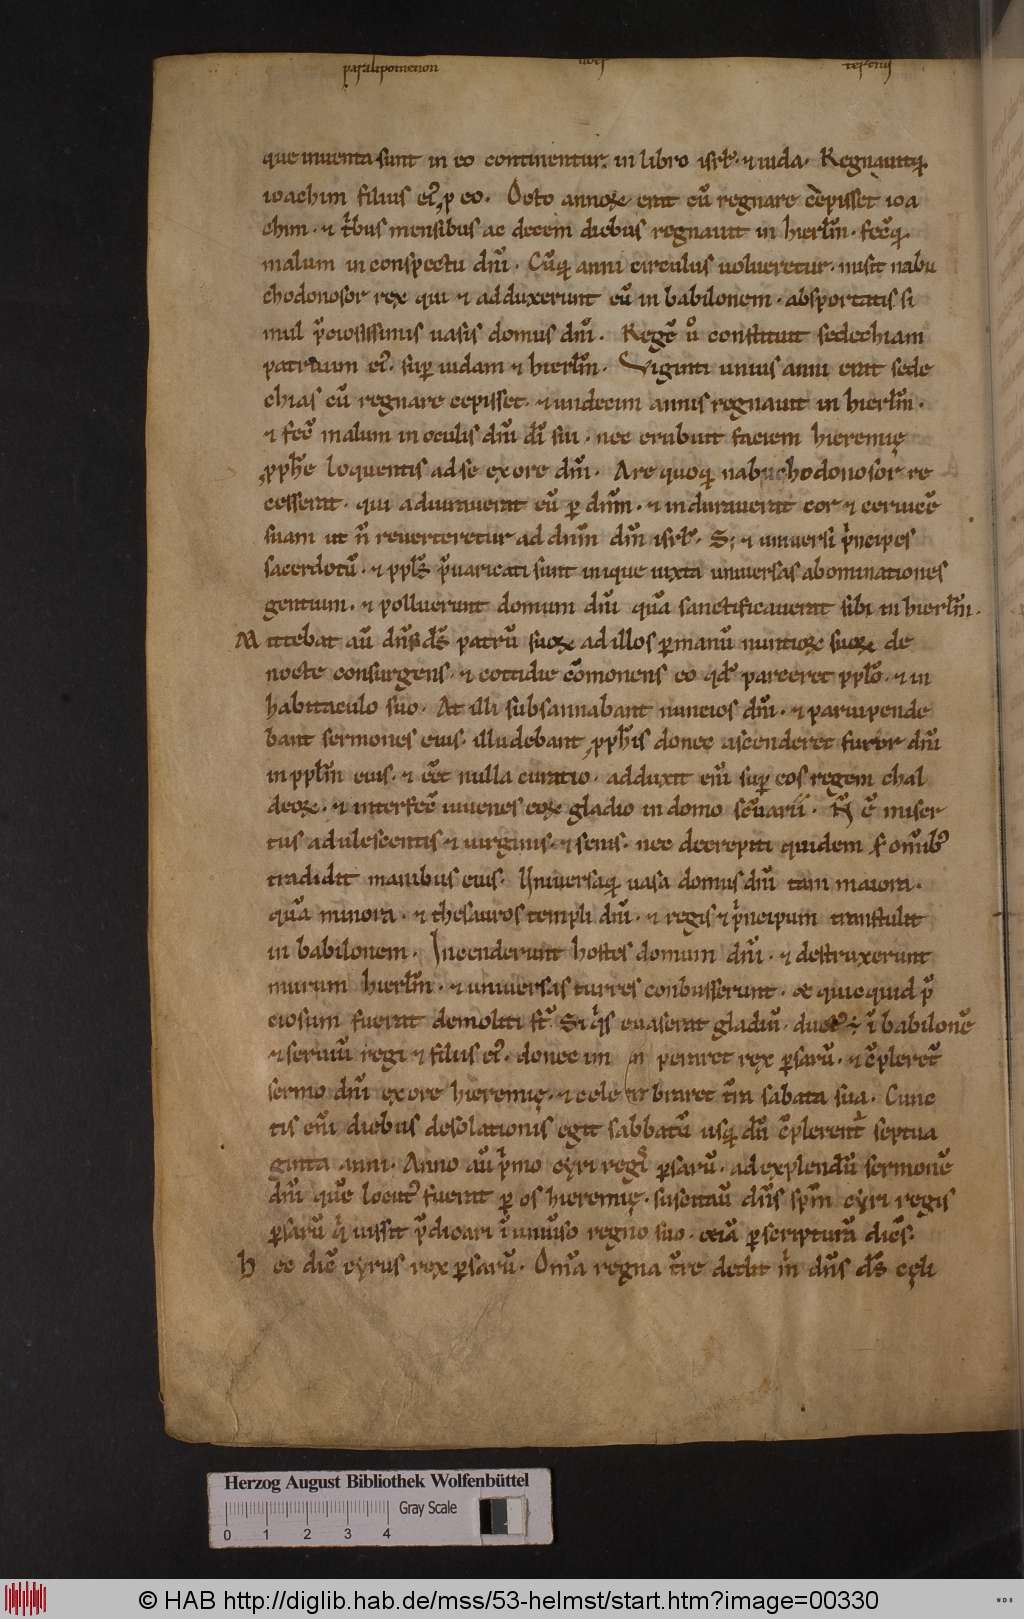 paralipomenon
que inventa sunt in eo continentur. in libro isrł. ⁊ iuda. Regnauitq;
ioachim filius ei᷒ p eo. Octo annoꝝ erat cū regnare cepisset ioa
chim. ⁊ tͥbus mensibus ac decem diebus regnauit in hierlm̄. fecͭq;
malum in conspectu dn̄i. Cūq; anni circulus uolueretur. misit nabu
chodonosor rex qui ⁊ adduxerunt eū in babilonem. absportatis si
mul p̄ciosissimis uasis domus dn̄i. Regē ůo constituit sedechiam
patruum ei᷒. suꝑ iudam ⁊ hierlm̄. Viginti unius anni erat sede
chias cū regnare cepisset. ⁊ undecim annis regnauit in hierlm̄.
⁊ fecͭ malum in oculis dn̄i dī sui. nec erubuit faciem hieremię
ꝓphe loquentis ad se ex ore dn̄i. A rege quoq; nabuchodonosor re
cesserat. qui adiurauerat eū ꝑ dn̄m. ⁊ indurauerat cor ⁊ ceruicē
suam ut n̄ reverteretur ad dnm̄ dm̄ isrł. S; ⁊ uniuersi pͥncipes
sacerdotū. ⁊ ppls̄ p̄uaricati sunt inique iuxta uniuersas abominationes
gentium. ⁊ polluerunt domum dn̄i quā sanctificauerat sibi in hierlm̄.
Mittebat aū dn̄s ds̄ patrū suoꝝ ad illos ꝑ manū nuntioꝝ suoꝝ de
nocte consurgens. ⁊ cottidie cōmonens eo qd̄ parceret pplo̅. ⁊ in
habitaculo suo. At illi subsannabant nuncios dn̄i. ⁊ paruipende
bant sermones eius. illudebant ꝓphis donec ascenderet furor dn̄i
in pplm̄ eius. ⁊ eēt nulla curatio. adduxit eni̅ suꝑ eos regem chal
deoꝝ. ⁊ interfecͭ iuuenes eoꝝ gladio in domo sc̄uarii. N̄ ē miser
tus adulescentis ⁊ uirginis. ⁊ senis. nec decrepiti quidem s; om̄ib᷒
tradidit manibus eius. Uniuersaq; uasa domus dn̄i tam maiora.
quā minora. ⁊ thesauros templi dn̄i. ⁊ regis ⁊ pͥncipum transtulit
in babilonem. Incenderunt hostes domum dn̄i. ⁊ destruxerunt
murum hierlm̄. ⁊ uniuersas turres conbusserunt. & quicquid p̄
ciosum fuerat demoliti st̄. Si qͥs euaserat gladiū. duct᷒ ⁊ ī babilonē
⁊ seruiū regi ⁊ filiis ei᷒. donec im peraret rex ꝑsarū. ⁊ cōpleret᷒
sermo dn̄i ex ore hieremię. ⁊ cele braret tr̄a sabata sua. Cunc
tis eni̅ diebus desolationis egit sabbatū usq; dū cōplerentͬ septua
ginta anni. Anno aū pͥmo cyri regi᷒ ꝑsarū. ad explendū sermonē
dn̄i quē locut᷒ fuerat ꝑ os hieremię. suscitaū dn̄s spm̄ cyri regis
ꝑsarū qͥ iussit p̄dicari ī uniūso regno suo. eciā ꝑ scripturā dicēs.
Hec dic̄ cyrus rex ꝑsarū. Om̄a regna tr̄re dedit mͥ dn̄s ds̄ cęli
Herzog August Bibliothek Wolfenbüttel
Gray Scale
0 1 2 3 4
© HAB http://diglib.hab.de/mss/53-helmst/start.htm?image=00330